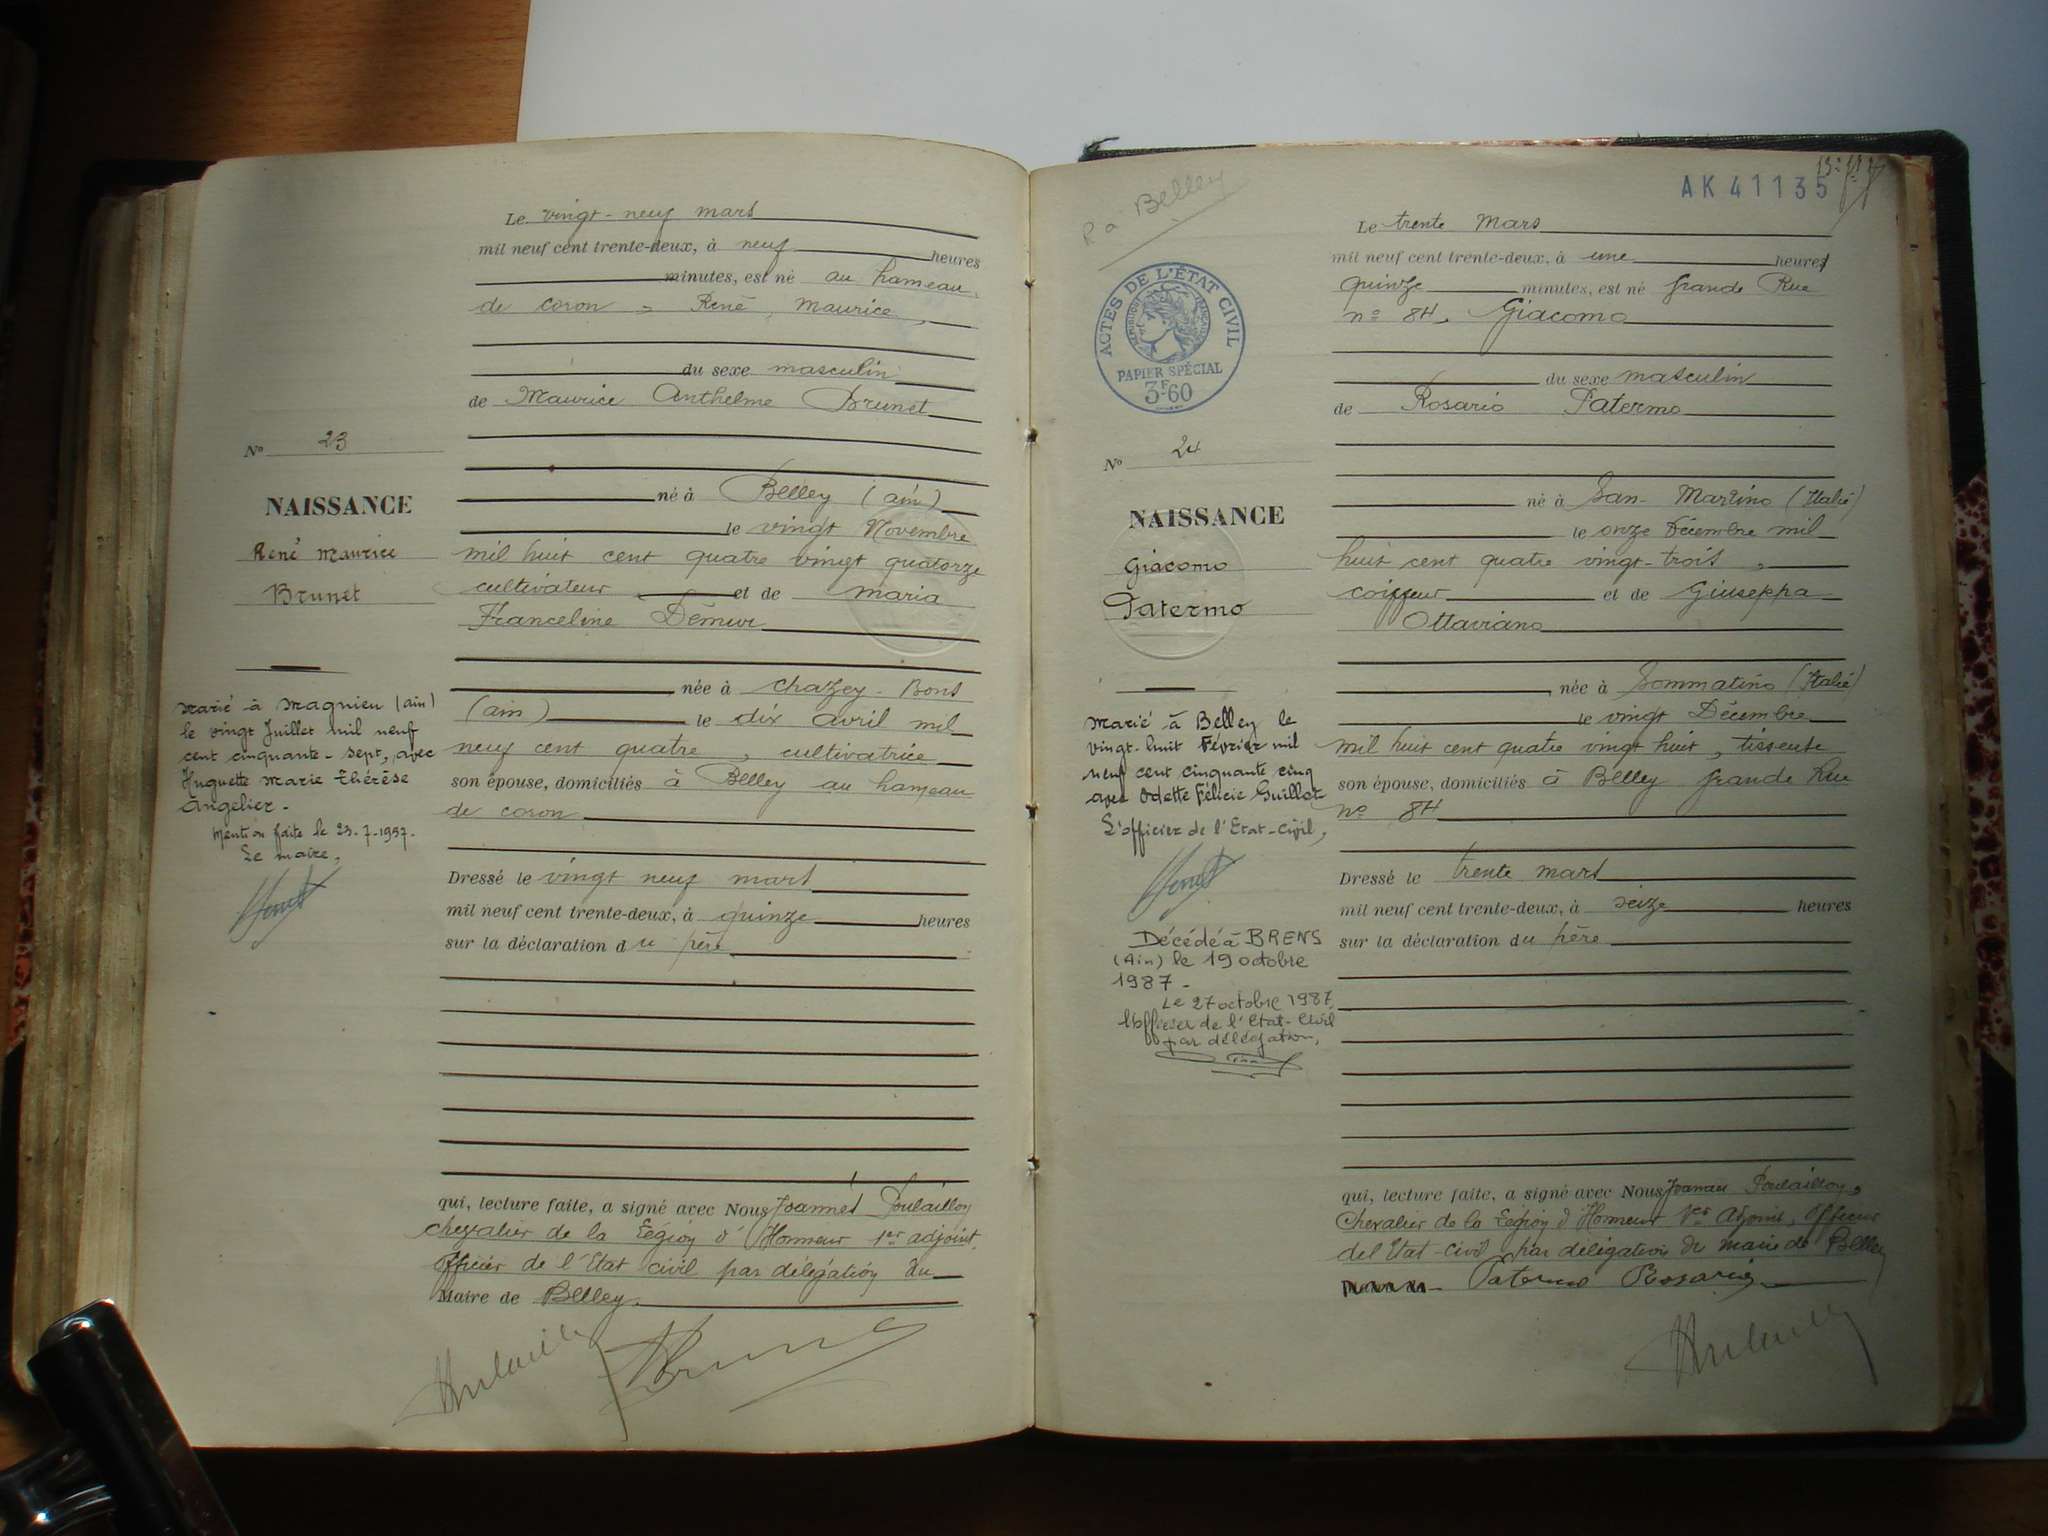 Le vingt-neuf mars
mil neuf cent trente-deux, à neuf heures
minutes, est né au hameau
de coron, René, Maurice,
du sexe masculin
de Maurice Anthelme Brunet
N° 23
né à Belley (ain)
NAISSANCE
le vingt Novembre
René Maurice
mil huit cent quatre vingt quatorze
Brunet
cultivateur et de maria
Franceline Démur
née à Chazey-Bons
(ain) le dix avril mil
neuf cent quatre, cultivatrice
son épouse, domiciliés à Belley au hameau
de coron
marié à Magnieu (ain)
le vingt Juillet mil neuf
cent cinquante-sept, avec
Huguette Marie Thérèse
Angelier-
Mention faite le 23-7-1957-
Le maire,
Dressé le vingt neuf mars
mil neuf cent trente-deux, à quinze heures
sur la déclaration du père
qui, lecture faite, a signé avec Nous Joannès Poulailloy
chevalier de la Légion d'Honneur 1er adjoint,
officier de l'Etat civil par délégation du
Maire de Belley.
P à Belley
AK 41135
ACTES DE L'ÉTAT CIVIL
RÉPUBLIQUE FRANÇAISE
PAPIER SPÉCIAL
3F60
Le trente Mars
mil neuf cent trente-deux, à une heures
quinze minutes, est né grande Rue
n° 84, Giacomo
du sexe masculin
de Rosario Patermo
N° 24
né à San-Martino (Italie)
NAISSANCE
le onze Décembre mil
Giacomo
huit cent quatre vingt-trois,
Patermo
coiffeur et de Giuseppa
Ottaviano
née à Sommatino (Italie)
le vingt Décembre
mil huit cent quatre vingt huit, tisseuse
son épouse, domiciliés à Belley grande Rue
n° 84
Marié à Belley le
vingt-huit Février mil
neuf cent cinquante cinq
avec Odette Félicie Guillot
L'officier de l'Etat-Civil,
Décédé à BRENS
(Ain) le 19 octobre
1987-
Le 27 octobre 1987
L'officier de l'Etat-Civil
par délégation,
Dressé le trente mars
mil neuf cent trente-deux, à seize heures
sur la déclaration du père
qui, lecture faite, a signé avec Nous Joannès Poulailloy,
Chevalier de la Légion d'Honneur 1er Adjoint, Officier
de l'Etat-Civil par délégation du maire de Belley
Paterno Rosario